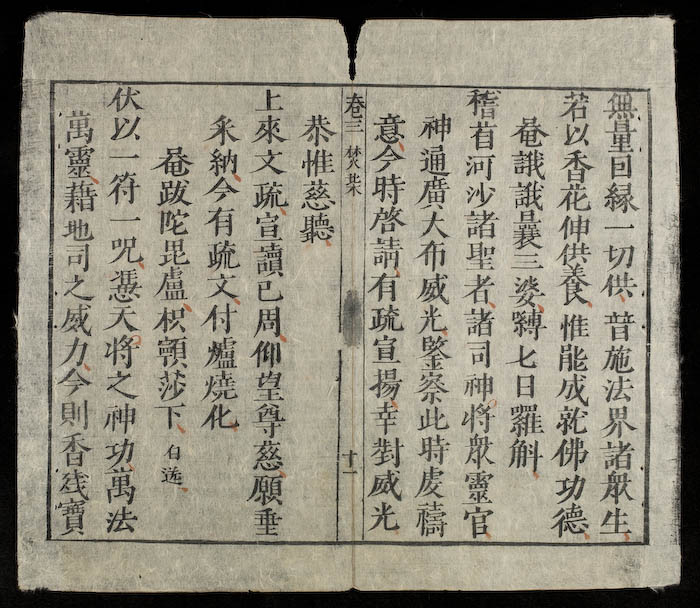 無量因緣一切供普施法界諸衆生
若以香花伸供養惟能成就佛功德
菴誐誐曩三婆縛七日羅斛
稽首河沙諸聖者諸司神將衆靈官
神通廣大布威光鑒察此時虔禱
意今時啓請有疏宣揚幸對威光
卷三 焚 十一
恭惟慈聽
上來文疏宣讀已周仰望尊慈願垂
采納今有疏文付爐燒化
菴跋陀毘盧枳頷莎下 白送
伏以一符一呪憑天將之神功萬法
萬靈藉地司之威力今則香幾寶